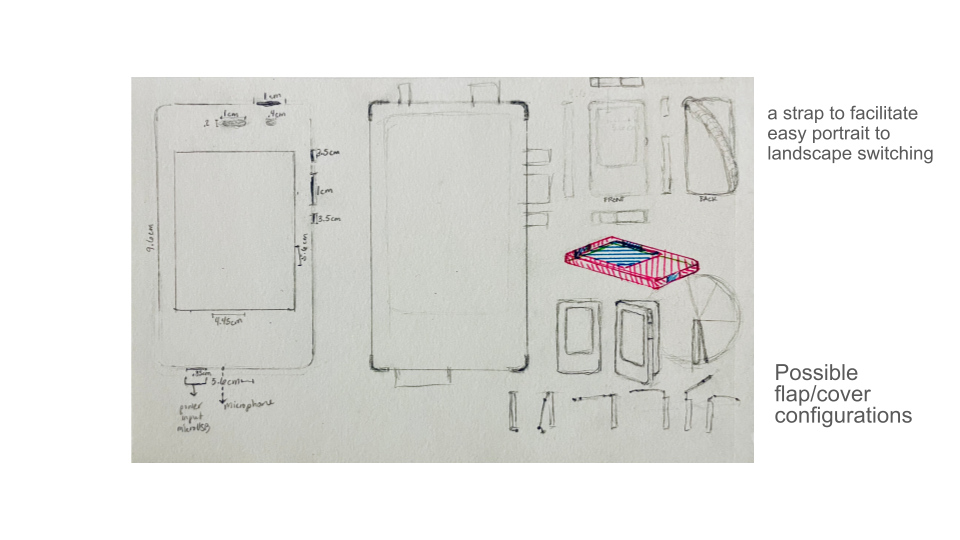 1cm
1cm
.4cm
.2
2.5cm
1cm
3.5cm
9.6cm
4.45cm
5.6cm
power
input
microUSB
microphone
FRONT
BACK
a strap to facilitate
easy portrait to
landscape switching
Possible
flap/cover
configurations